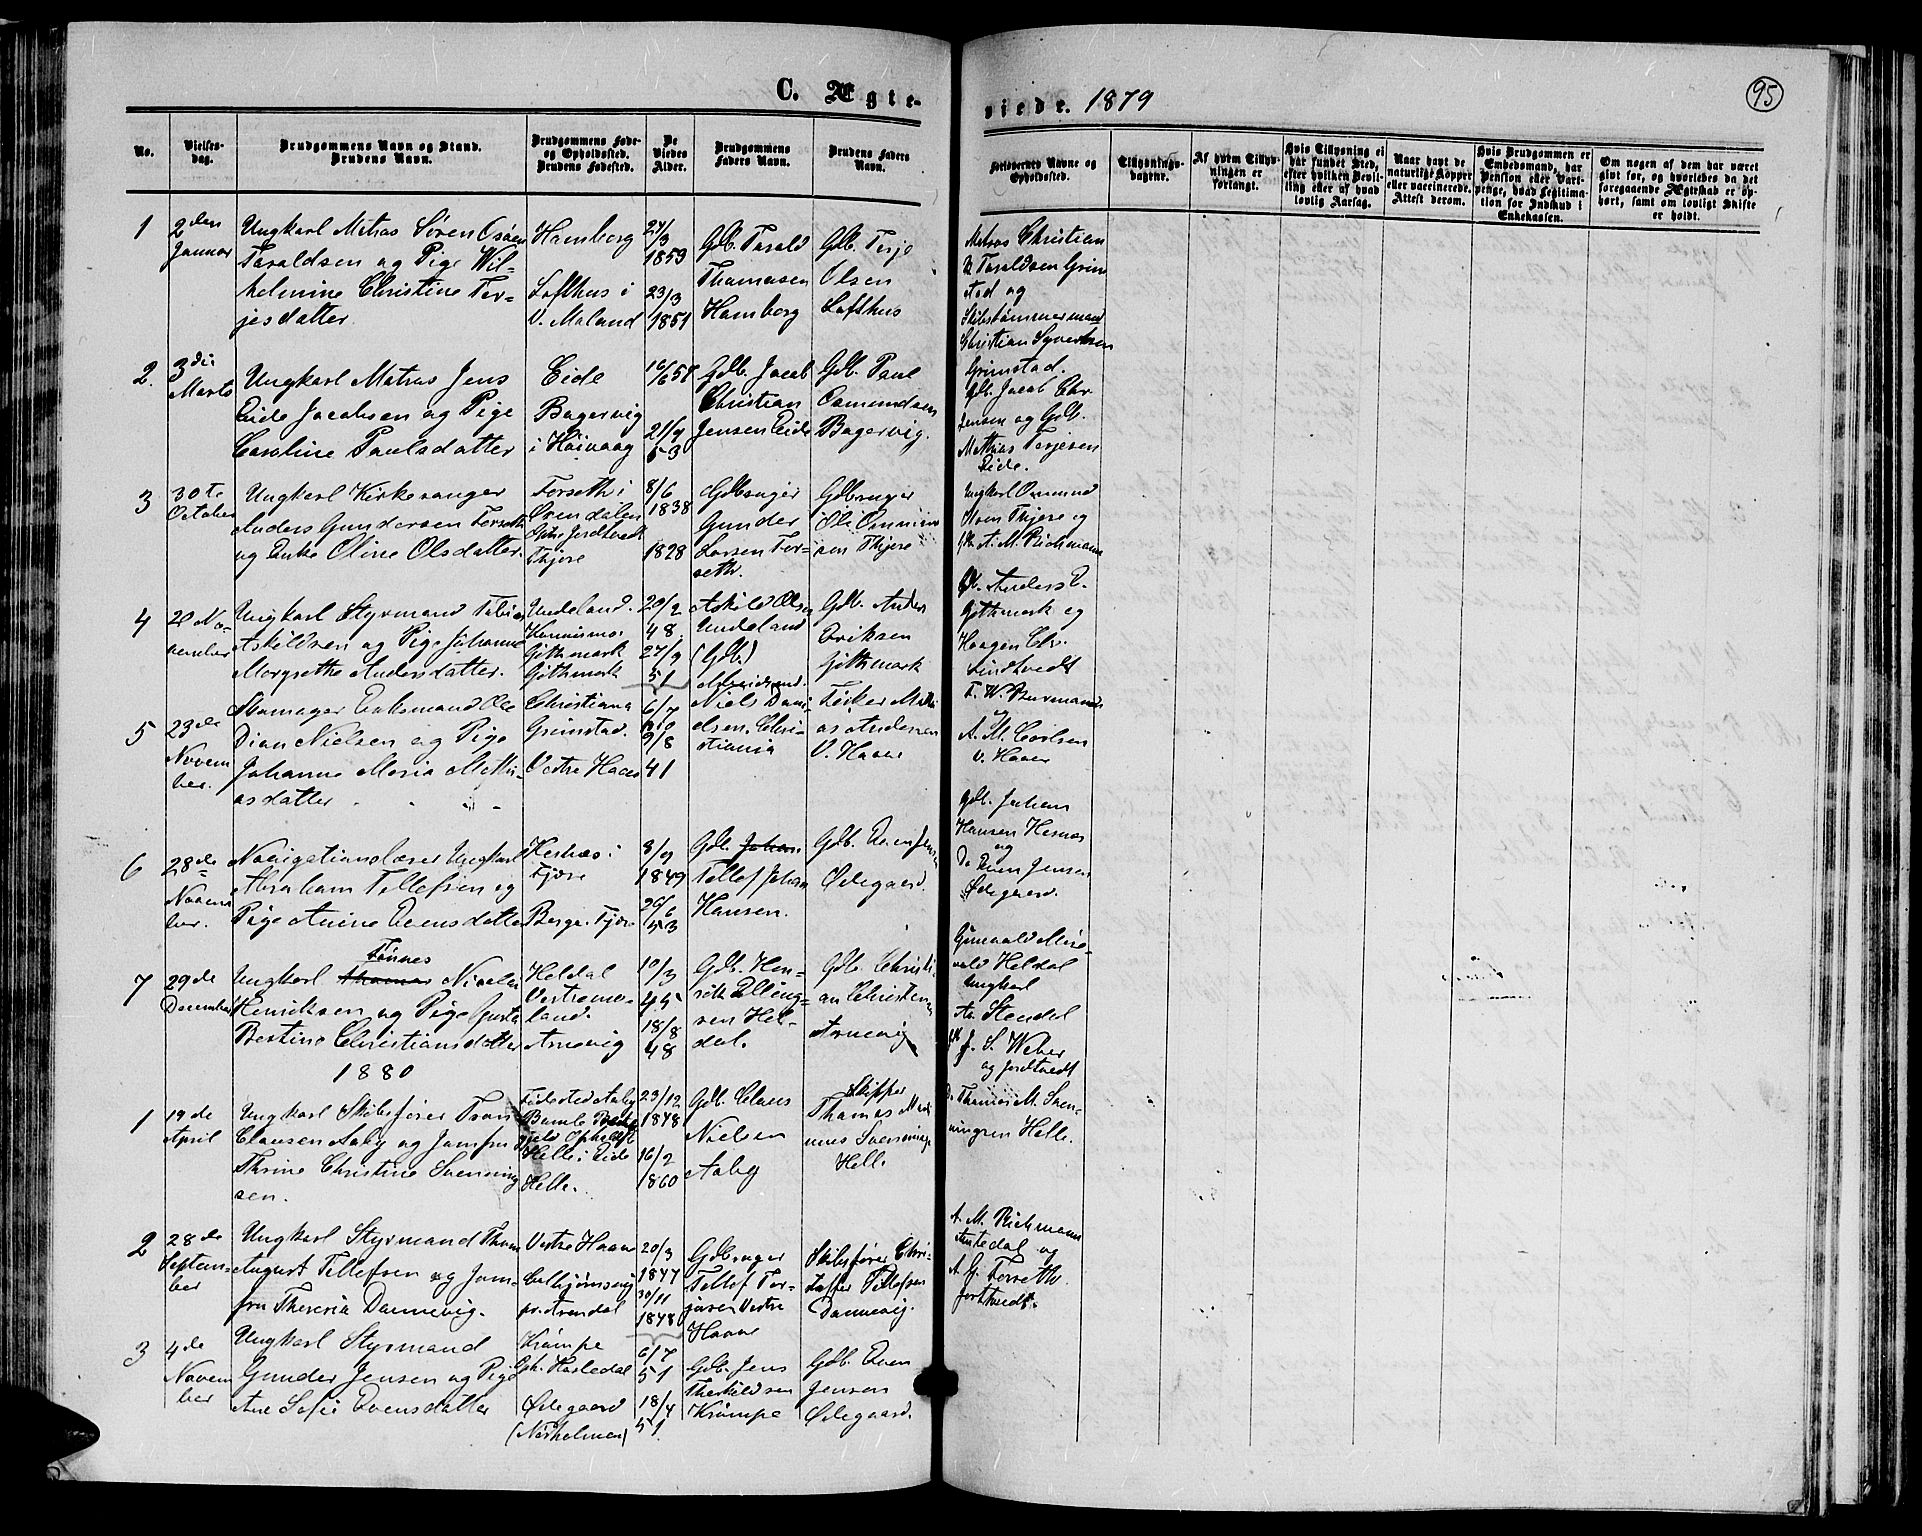 C. Ægte-
viede. 1879
95
No.
Vielses-
dag.
Brudgommens Navn og Stand.
Brudens Navn.
Brudgommens Føde-
og Opholdssted.
Brudens Fødested.
De
Viedes
Alder.
Brudgommens
Faders Navn.
Brudens Faders
Navn.
Forlovernes Navne og
Opholdssted.
Tillysnings-
dagene.
Af hvem Tillys-
ningen er
forlangt.
Hvis Tillysning ei
har fundet Sted,
efter hvilken Bevil-
ling eller af hvad
lovlig Aarsag.
Naar havt de
naturlige Kopper
eller vaccinerede.
Attest derom.
Hvis Brudgommen er
Embedsmand, har
Pension eller Vart-
penge, hvad Legitima-
tion for Indskud i
Enkekassen.
Om nogen af dem har været
givt før, og hvorledes da det
foregaaende Ægteskab er op-
hørt, samt om lovligt Skifte
er holdt.
1
2den
Januar
Ungkarl Matros Søren Osøen
Taraldsen og Pige Wil-
helmine Christine Ter-
jesdatter
Hamborg
Lofthus i
V. Moland
1859
23/3
1851
Gdb. Tarald
Thomasen
Hamborg
Gdb. Terje
Olsen
Lofthus
Matros Christian
Taraldsen Grim
stad og
Skibstømmermand
Christian Syvertsen
Grimstad.
2.
3die
Marts
Ungkarl Matros Jens
Eide Jacobsen og Pige
Caroline Paulsdatter
Eide
Bagervig
i Høivaag
21/9
53
Gdb. Jacob
Christian
Jensen Eide
Gdb. Paul
Osmundsen
Bagervig.
Gdb. Jacob Chr.
Jensen og Gdb.
Mathias Terjesen
Eide.
3
30te
October
Ungkarl Kirkesanger
Anders Gundersen Forseth
og Enke Oline Olsdatter.
Forseth i
Tjøre
8/6
1838
1828
Gdbruger
Gunder
Larsen For-
seth.
Gdbruger
Ole
sen Tjøre
Ungkarl Osmund
Olsen Tjøre og
A. M. Richmann
4
20 No-
vember
Ungkarl Styrmand Tobias
Askildsen og Pige Johanne
Margrethe Andersdatter.
Undeland.
Githmark
Githmark
20/2
48
27/9
51
Askild Olsen
Undeland
(Gdb.)
Gdb. Anders
Eriksen
Githmark
Gdb. Anders E.
Githmark og
Haagen Chr.
Lindtvedt
5
23de
Novem
ber.
Enkemand Ole
Dian Nielsen og Pige
Johanne Maria Mathi-
asdatter
Christiana
Grimstad.
Vestre Haave
6/7
9/8
41
Niels Dani-
elsen Chri-
stiania
Fisker Mathi
as Andersen
V. Haave
A. M. Carlsen
V. Haave
6
28de
Novem
ber.
Navigationslærer Ungkarl
Abraham Tellefsen og
Pige Anine Evensdatter
Hesnæs i
Fjære
Berge. Fjære
8/9
1849
26/6
53
Gdb. Johan
Tellef Johan
Hansen.
Gdb. Even Jensen
Ødegaard
Gdb. Johan
Hansen Hesnæs
og
Do Even Jensen
Ødegaard.
7
29de
December
Tønnes
Ungkarl Thomas Nicolai
Henriksen og Pige Gusta
Bertine Christiansdatter
Heldal
Vestremo-
land.
Arnevig
10/3
45
18/8
48
Gdb. Hen-
rik Elling-
sen Hel-
dal.
Gdb. Christi
an Christensen
Arnevig
Heldal
Ungkarl
As. Stendal
J. S. Weber
og Jordtvedt
1880
1
19de
April
Ungkarl Skibsfører Tron
Clausen Aaby og Jomfru
Thrine Christine Svenning
sen.
Fødested Aaby
Bamle
Helle i Eide
Helle.
23/12
1848
16/2
1860
Gdb. Claus
Nielsen
Aaby
Skipper
Thomas Mad
nus Svenninge
Helle
Do Thomas M. Sven-
ningsen Helle.
2
28de
Septem-
ber
Ungkarl Styrmand Thom
August Tellefsen og Jom-
fru Theresia Dannevig.
Vestre Haave
pr. Arendal
20/3
1847
30/11
1848
Gdbruger
Tellef Ter-
jesen Vestre
Haave
Skibsfører Chri-
stoffer Tellefsen
Dannevig.
A. M. Richmann
og
A. G. Forseth.
Jortveidt.
3
4de
Novem
ber
Ungkarl Styrmand
Gunder Jensen og Pige
Ane Sofie Evensdatter
Krømpe
Oph. Hasledal
Ødegaard
(Nørholmen)
6/7
51
18/4
51
Gdb. Jens
Therkildsen
Krømpe
Gdb. Even
Jensen
Ødegaard.